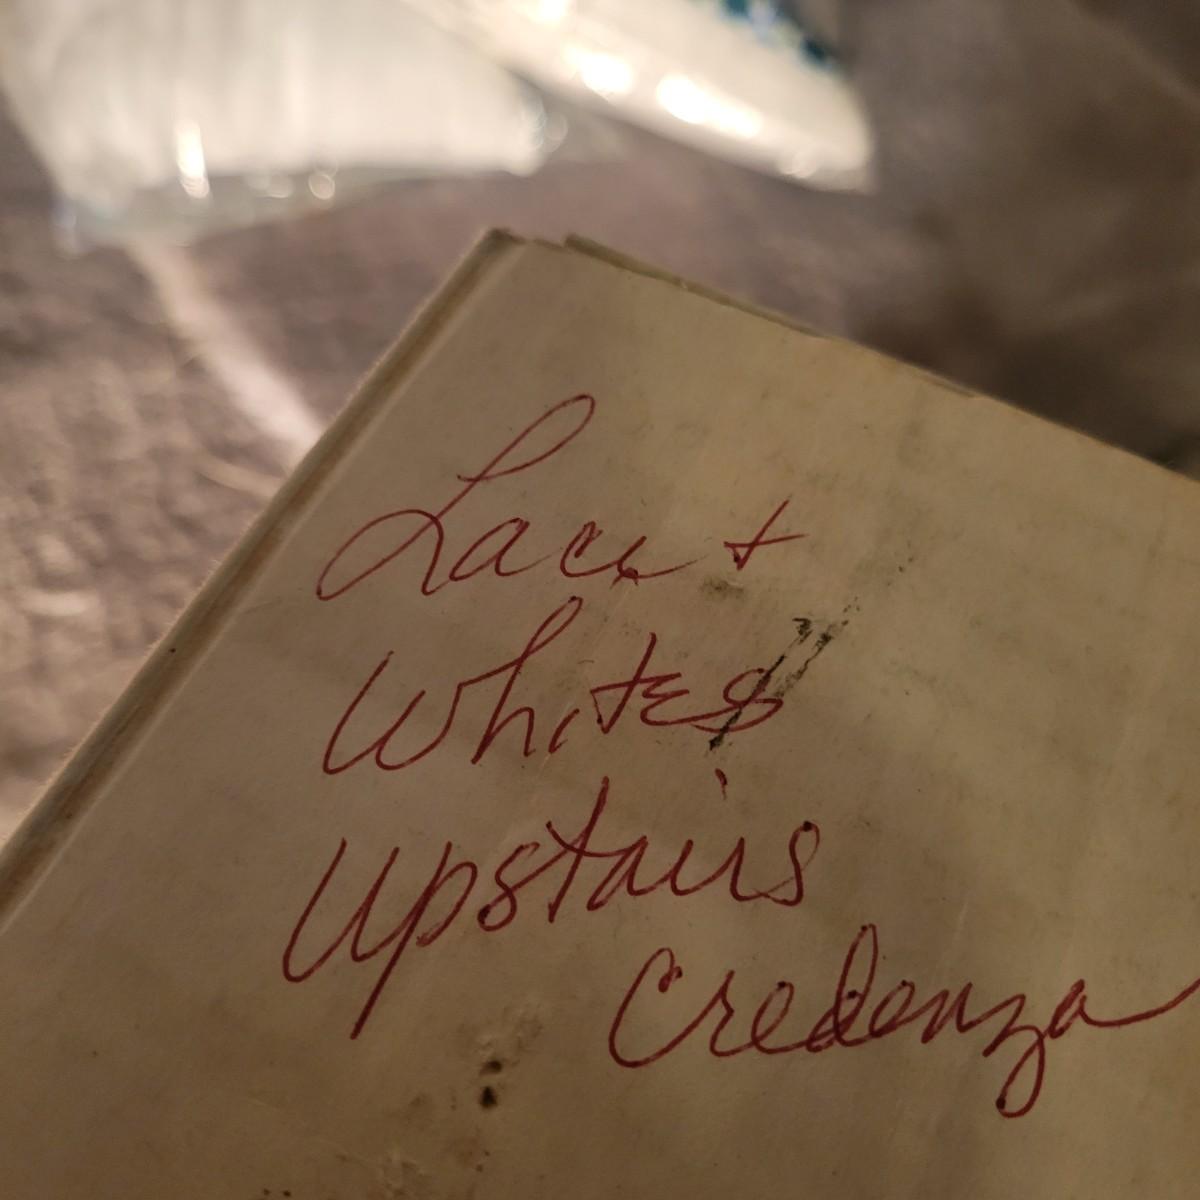 Lace +
Whites
Upstairs
Credenza